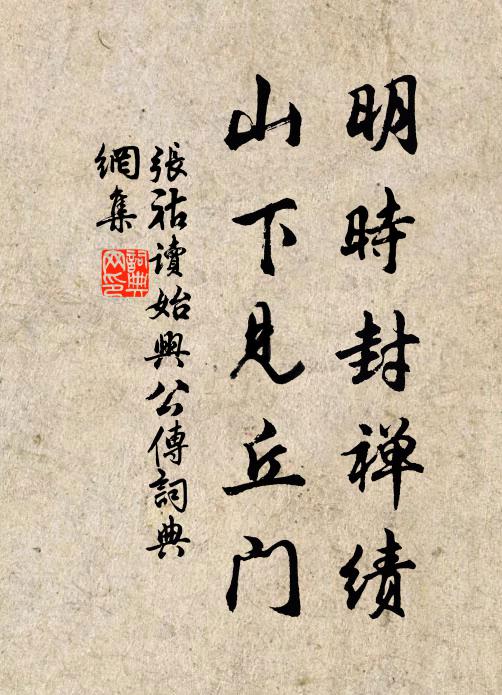 明時封禅绩
山下見丘门
張祜讀始興公傳詞典
網集
詞典网印